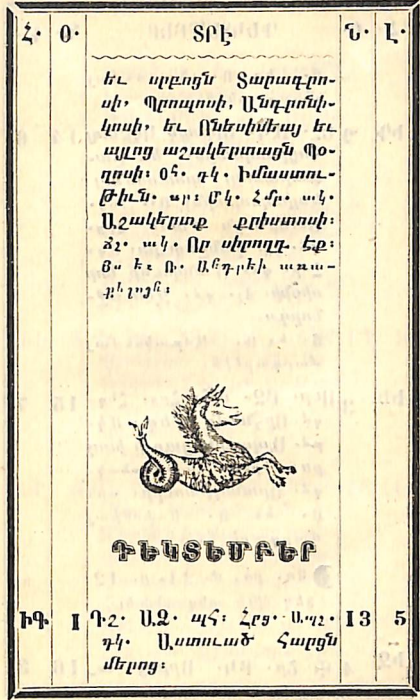 Հ. Օ. ՏՐԷ Ն. Լ.
եւ սրբոցն Տարագրո-
սի, Պրոպոսի, Անդրոնի-
կոսի, եւ Ոնեսիմեայ եւ
այլոց աշակերտացն Պօ-
ղոսի։ Օհ. դկ. Իմաստու-
թիւն. ար։ Մկ. Հմբ. ակ.
Աշակերտք քրիստոսի։
ճշ. ակ. Որ սիրողդ էք։
Յս եւ Ռ. Անդրէի առա-
քելոյն։
ԴԵԿՏԵՄԲԵՐ
ԻԳ 1 Դ.շ. ԱՁ. պհ։ Հրց. Ա.պշ. 13 5
դկ. Աստուած Հարցն
մերոց։